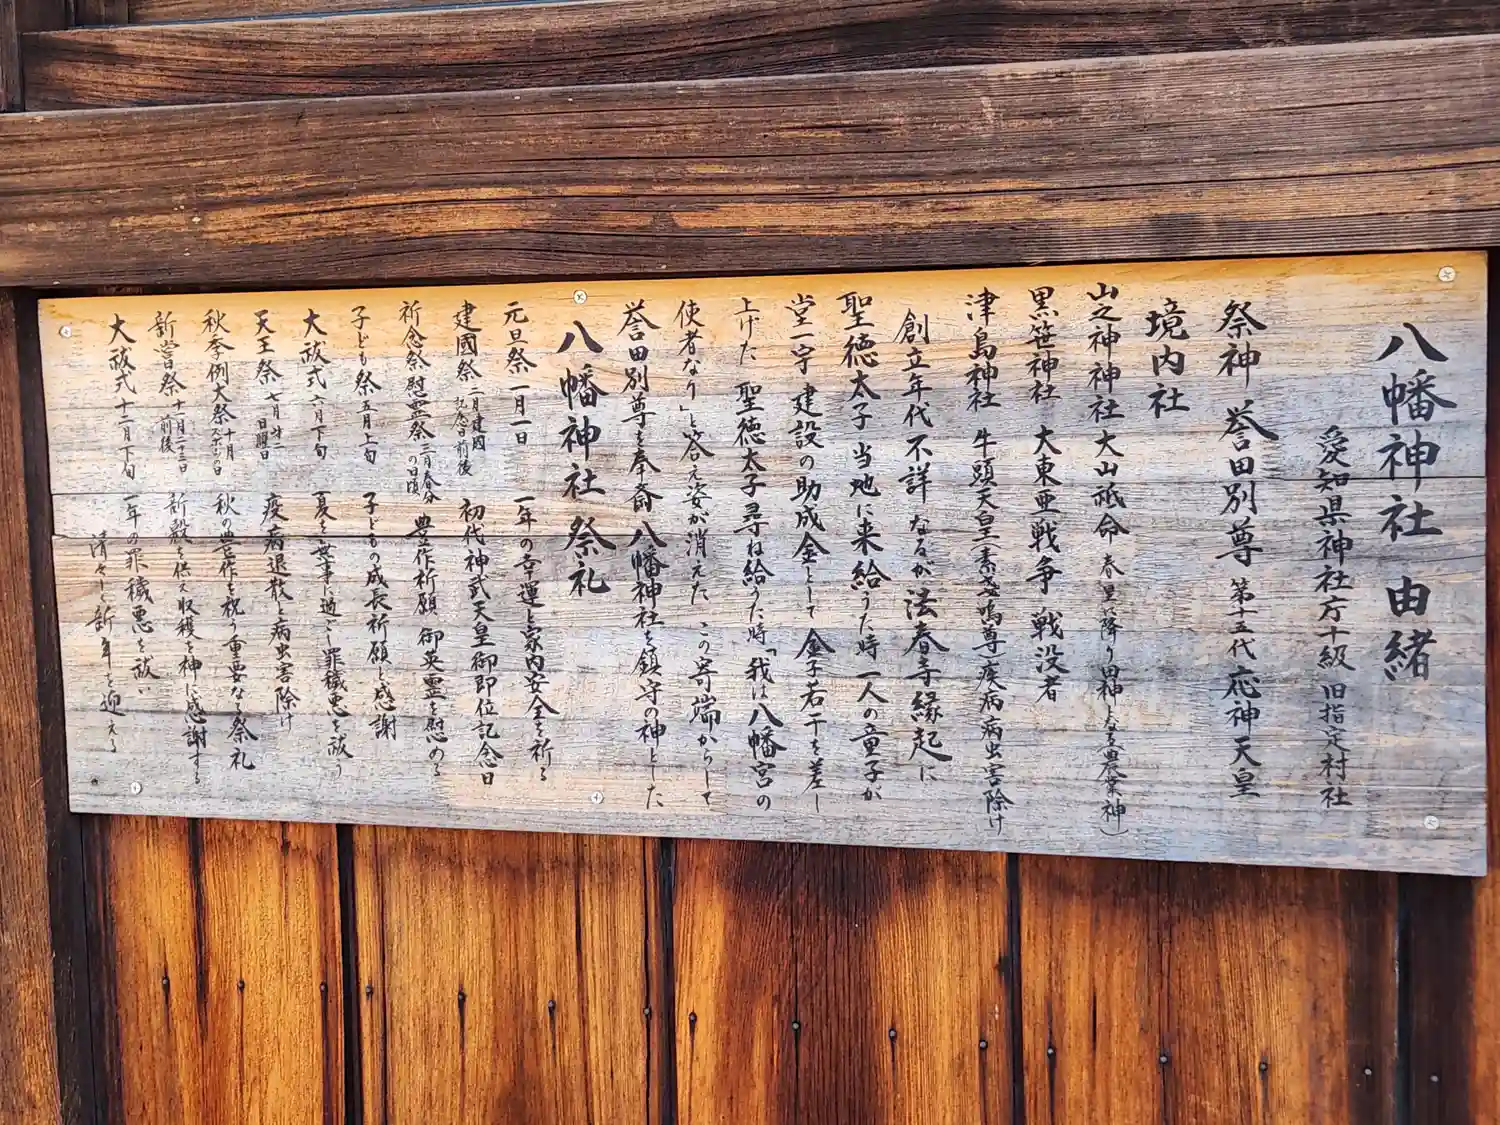 八幡神社 由緒
愛知県神社庁十級 旧指定村社
祭神 誉田別尊 第十五代応神天皇
境内社
山之神神社 大山祇命 春 里に降り田神となる農業神)
黒笹神社 大東亜戦争 戦没者
津島神社 牛頭天皇(素戔嗚尊 疾病病虫害除け
創立年代 不詳 なるが 法春寺縁起に
聖徳太子 当地に来給うた時 一人の童子が
堂一宇 建設の助成金として 金子若干を差し
上げた 聖徳太子 尋ね給うた時「我は八幡宮の
使者なり」と答え姿が消えた この寄端からして
誉田別尊を奉斎 八幡神社を鎮守の神とした
八幡神社 祭礼
元旦祭 一月一日 一年の幸運と家内安全を祈る
建國祭 二月建國記念日前後 初代神武天皇御即位記念日
祈念祭 慰霊祭 三月春分の日頃 豊作祈願 御英霊を慰める
子ども祭 五月上旬 子どもの成長祈願と感謝
大祓式 六月下旬 夏を無事に過ごし罪穢悪を祓う
天王祭 七月第二日曜日 疫病退散と病虫害除け
秋季例大祭 十月スポーツの日 秋の豊作を祝う重要なる祭礼
新嘗祭 十一月二十三日前後 新穀を供え収穫を神に感謝する
大祓式 十二月下旬 一年の罪穢悪を祓い
清々しく新年を迎える